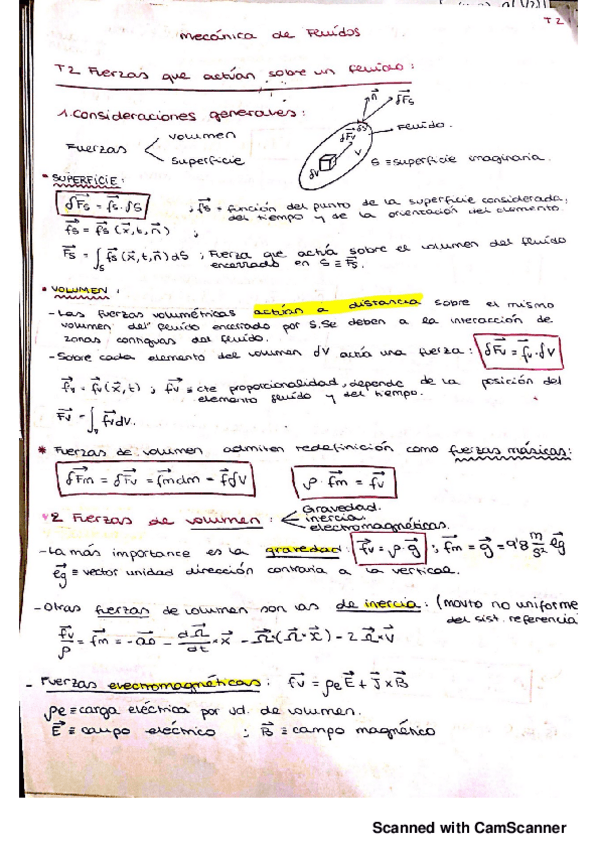 T2
mecánica de Fluidos
T2 Fuerzas que actúan sobre un fluido:
1. Consideraciones generales:
Fuerzas
volumen
superficie
n⃗ δF⃗s
δF⃗v δS
V
δV
Fluido.
S ≡ superficie imaginaria.
• SUPERFICIE:
δF⃗s = f⃗s · δS ; f⃗s = función del punto de la superficie considerada,
del tiempo y de la orientación del elemento.
f⃗s = f⃗s (x⃗,t,n⃗) ;
F⃗s = ∫s f⃗s (x⃗,t,n⃗) dS ; Fuerza que actúa sobre el volumen del fluido
encerrado en S ≡ F⃗s.
• VOLUMEN:
- Las fuerzas volumétricas actúan a distancia sobre el mismo
volumen del fluido encerrado por S. Se deben a la interacción de
zonas contiguas del fluido.
- Sobre cada elemento del volumen dV actúa una fuerza: δF⃗v = f⃗v · δV
f⃗v = f⃗v (x⃗,t) ; f⃗v ≡ cte proporcionalidad, depende de la posición del
elemento fluido y del tiempo.
F⃗v = ∫ f⃗v dV.
* Fuerzas de volumen admiten redefinición como fuerzas másicas:
δF⃗m = δF⃗v = f⃗m dm = f⃗ δV
ρ · f⃗m = f⃗v
2 Fuerzas de volumen:
Gravedad.
inercia.
electromagnéticas.
- La más importance es la gravedad: f⃗v = ρ · g⃗ ; f⃗m = g⃗ = 9'8 m/s² e⃗g
e⃗g ≡ vector unidad dirección contraria a la vertical.
- Otras fuerzas de volumen son las de inercia: (movto no uniforme
del sist. referencia
f⃗v/ρ = f⃗m = -a⃗o - dΩ⃗/dt × x⃗ - Ω⃗ × (Ω⃗ × x⃗) - 2 Ω⃗ × v⃗
- Fuerzas electromagnéticas: f⃗v = ρe E⃗ + J⃗ × B⃗
ρe ≡ carga eléctrica por ud. de volumen.
E⃗ ≡ campo eléctrico ; B⃗ ≡ campo magnético
Scanned with CamScanner